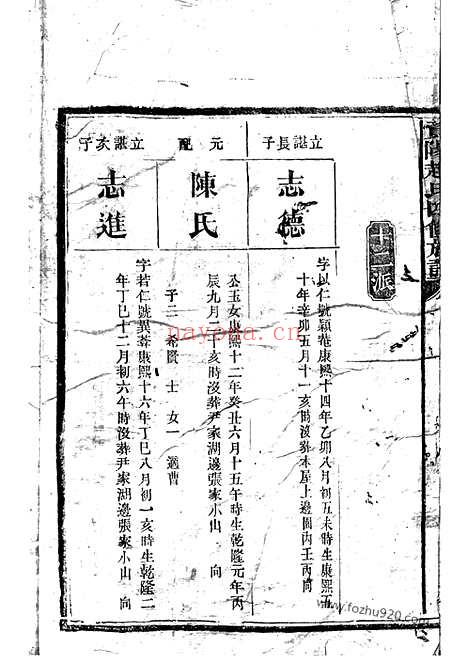 十二派
立諶長子
志德
字以仁號穎菴康熙十四年乙卯八月初五未時生康熙五
十年辛卯五月十一亥時沒葬木屋上邊圍丙壬丙向
元配
陳氏
公玉女康熙十二年癸丑六月十五午時生乾隆元年丙
辰九月二十亥時沒葬尹家湖邊張家小山 向
子二 希賢 士 女一 適曹
立諶次子
志進
字若仁號異蓉康熙十六年丁巳八月初一亥時生乾隆二
年丁巳十二月初六午時沒葬尹家湖邊張家小山 向
nayona.cn
www.fozhu920.com